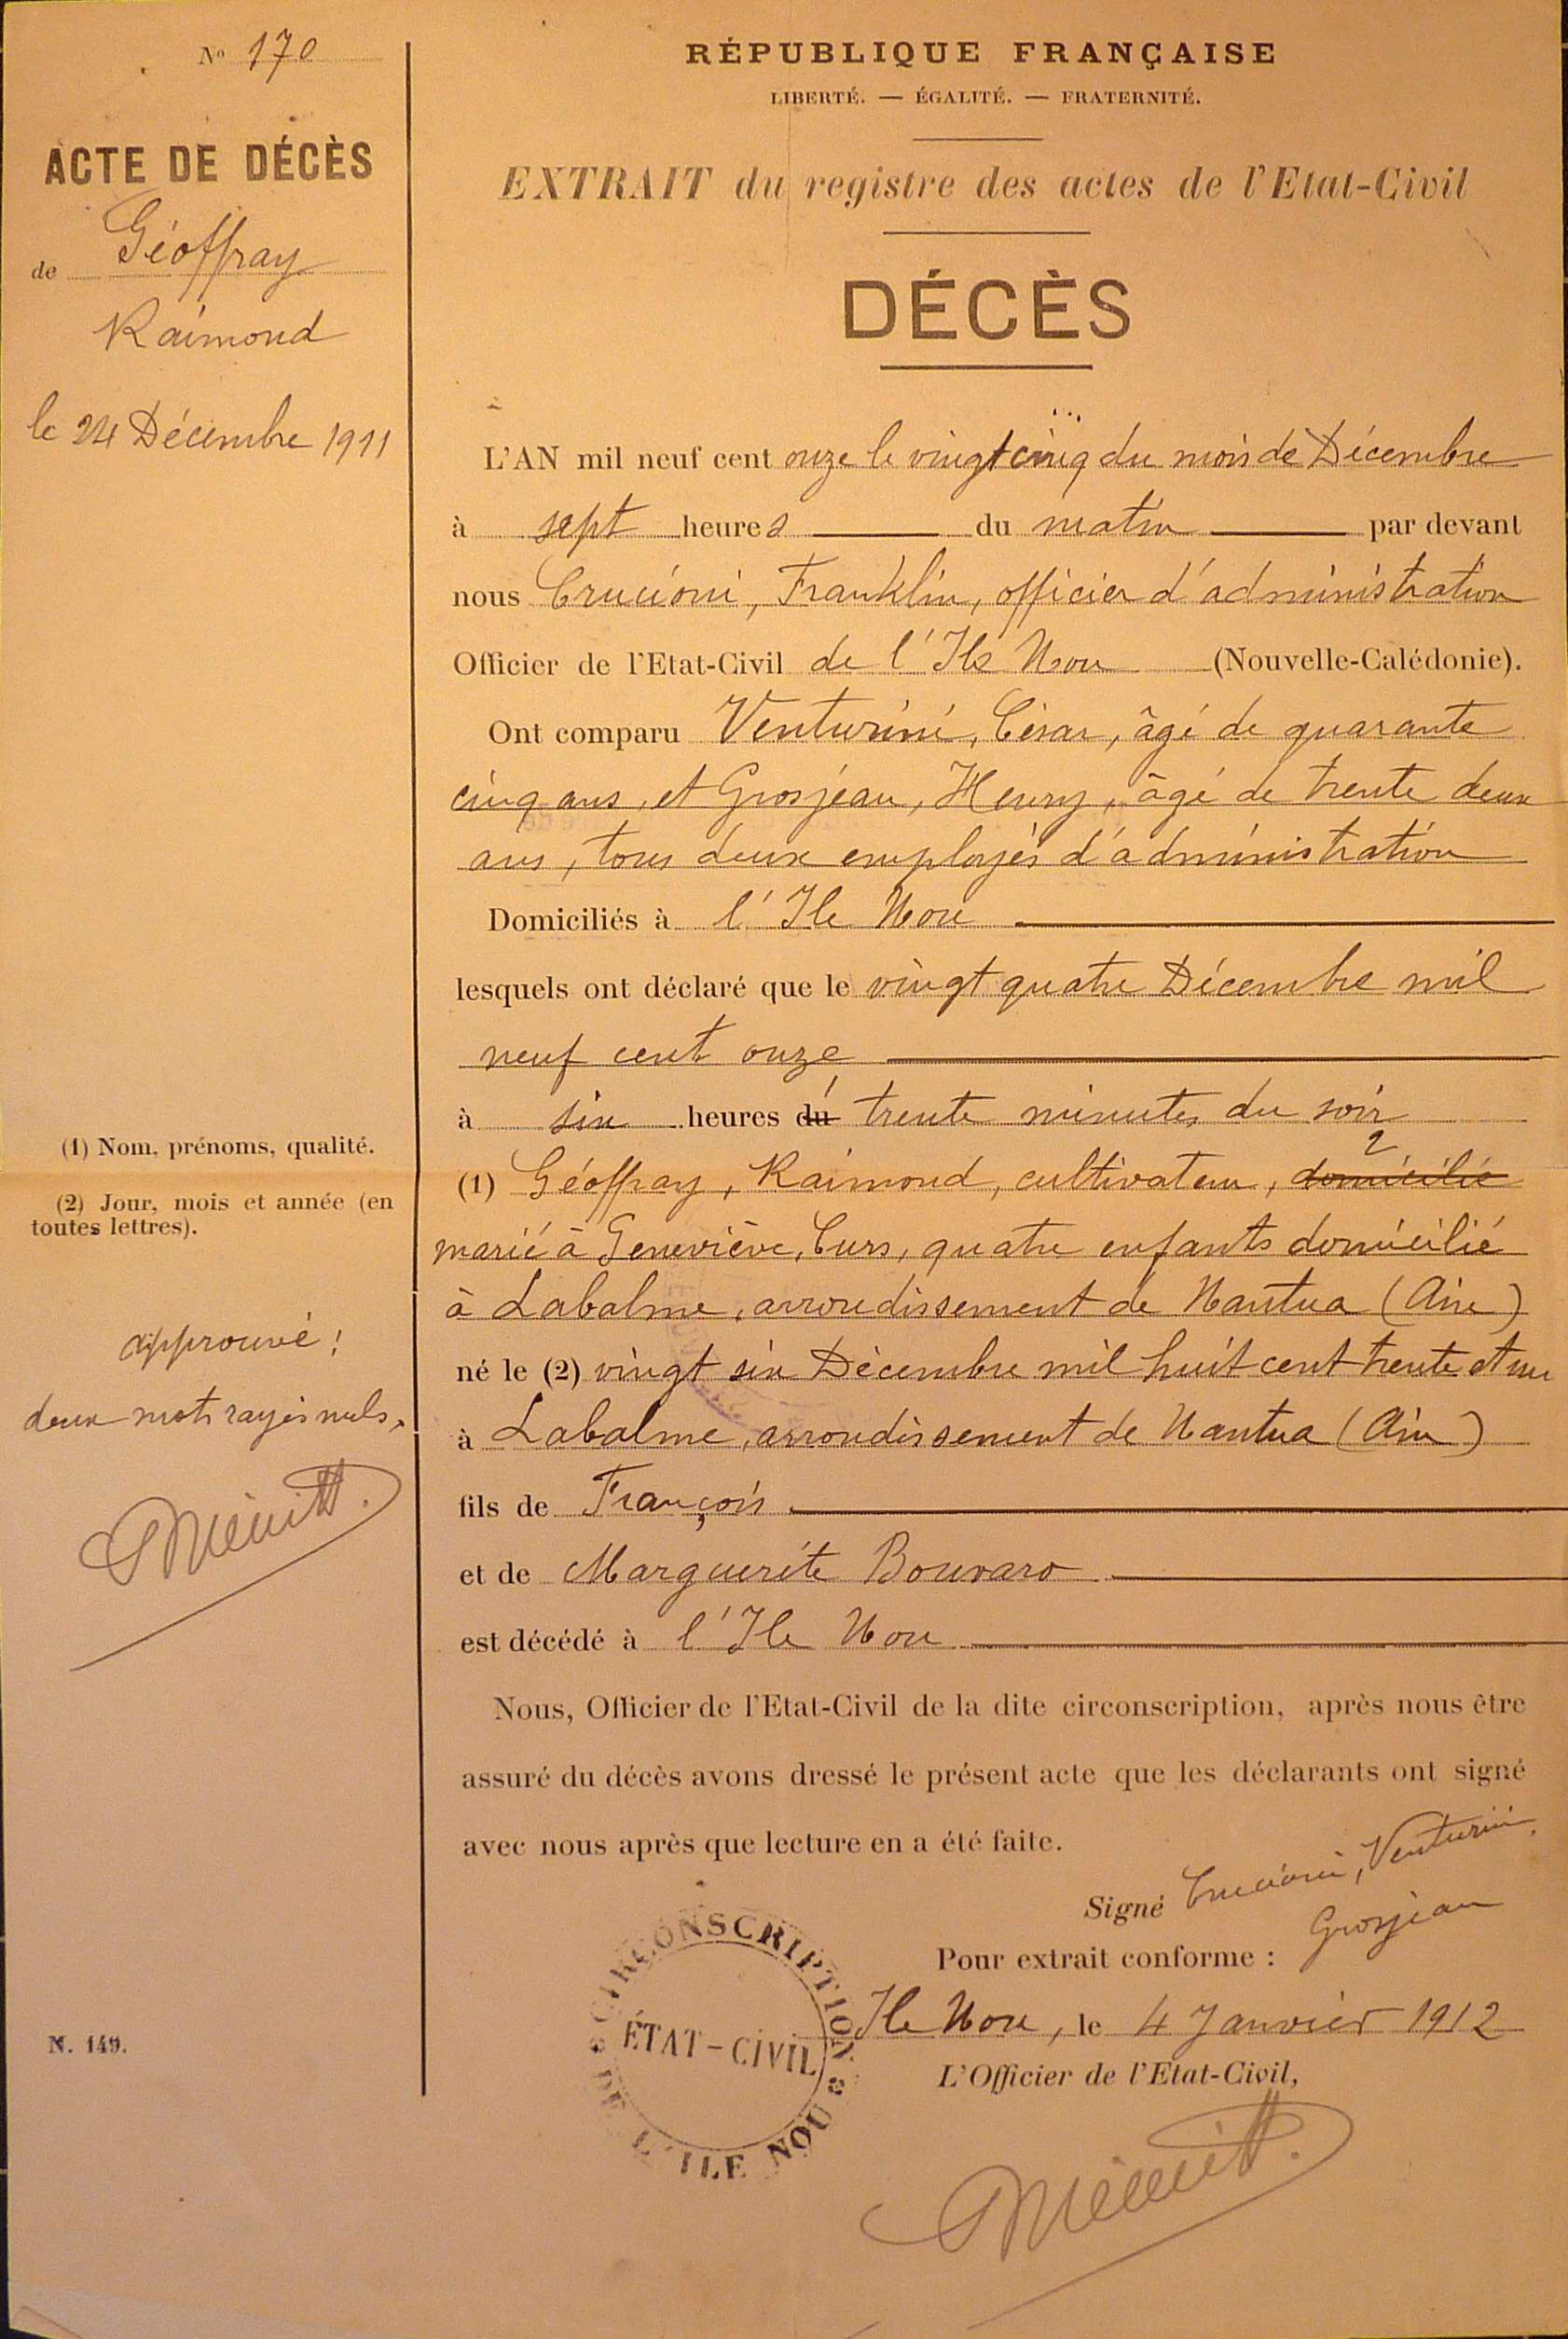 N° 170
ACTE DE DÉCÈS
de Géoffray
Raimond
le 24 Décembre 1911
(1) Nom, prénoms, qualité.
(2) Jour, mois et année (en
toutes lettres).
approuvé !
deux mots rayés nuls.
N. 149.
RÉPUBLIQUE FRANÇAISE
LIBERTÉ. — ÉGALITÉ. — FRATERNITÉ.
EXTRAIT du registre des actes de l'Etat-Civil
DÉCÈS
L'AN mil neuf cent onze le vingt cinq du mois de Décembre
à sept heures du matin par devant
nous Crucioni, Franklin, officier d'administration
Officier de l'Etat-Civil de l'Ile Nou (Nouvelle-Calédonie).
Ont comparu Venturini, César, âgé de quarante
cinq ans, et Grosjean, Henry, âgé de trente deux
ans, tous deux employés d'administration
Domiciliés à l'Ile Nou
lesquels ont déclaré que le vingt quatre Décembre mil
neuf cent onze
à six heures du trente minutes du soir
(1) Géoffray, Raimond, cultivateur, domicilié
marié à Geneviève, Curs, quatre enfants domicilié
à Labalme, arrondissement de Nantua (Ain)
né le (2) vingt six Décembre mil huit cent trente et un
à Labalme, arrondissement de Nantua (Ain)
fils de François
et de Marguerite Bouvard
est décédé à l'Ile Nou
Nous, Officier de l'Etat-Civil de la dite circonscription, après nous être
assuré du décès avons dressé le présent acte que les déclarants ont signé
avec nous après que lecture en a été faite.
Signé Crucioni, Venturini,
Grosjean
Pour extrait conforme :
Ile Nou, le 4 Janvier 1912
L'Officier de l'Etat-Civil,
CIRCONSCRIPTION
ÉTAT-CIVIL
DE L'ILE NOU